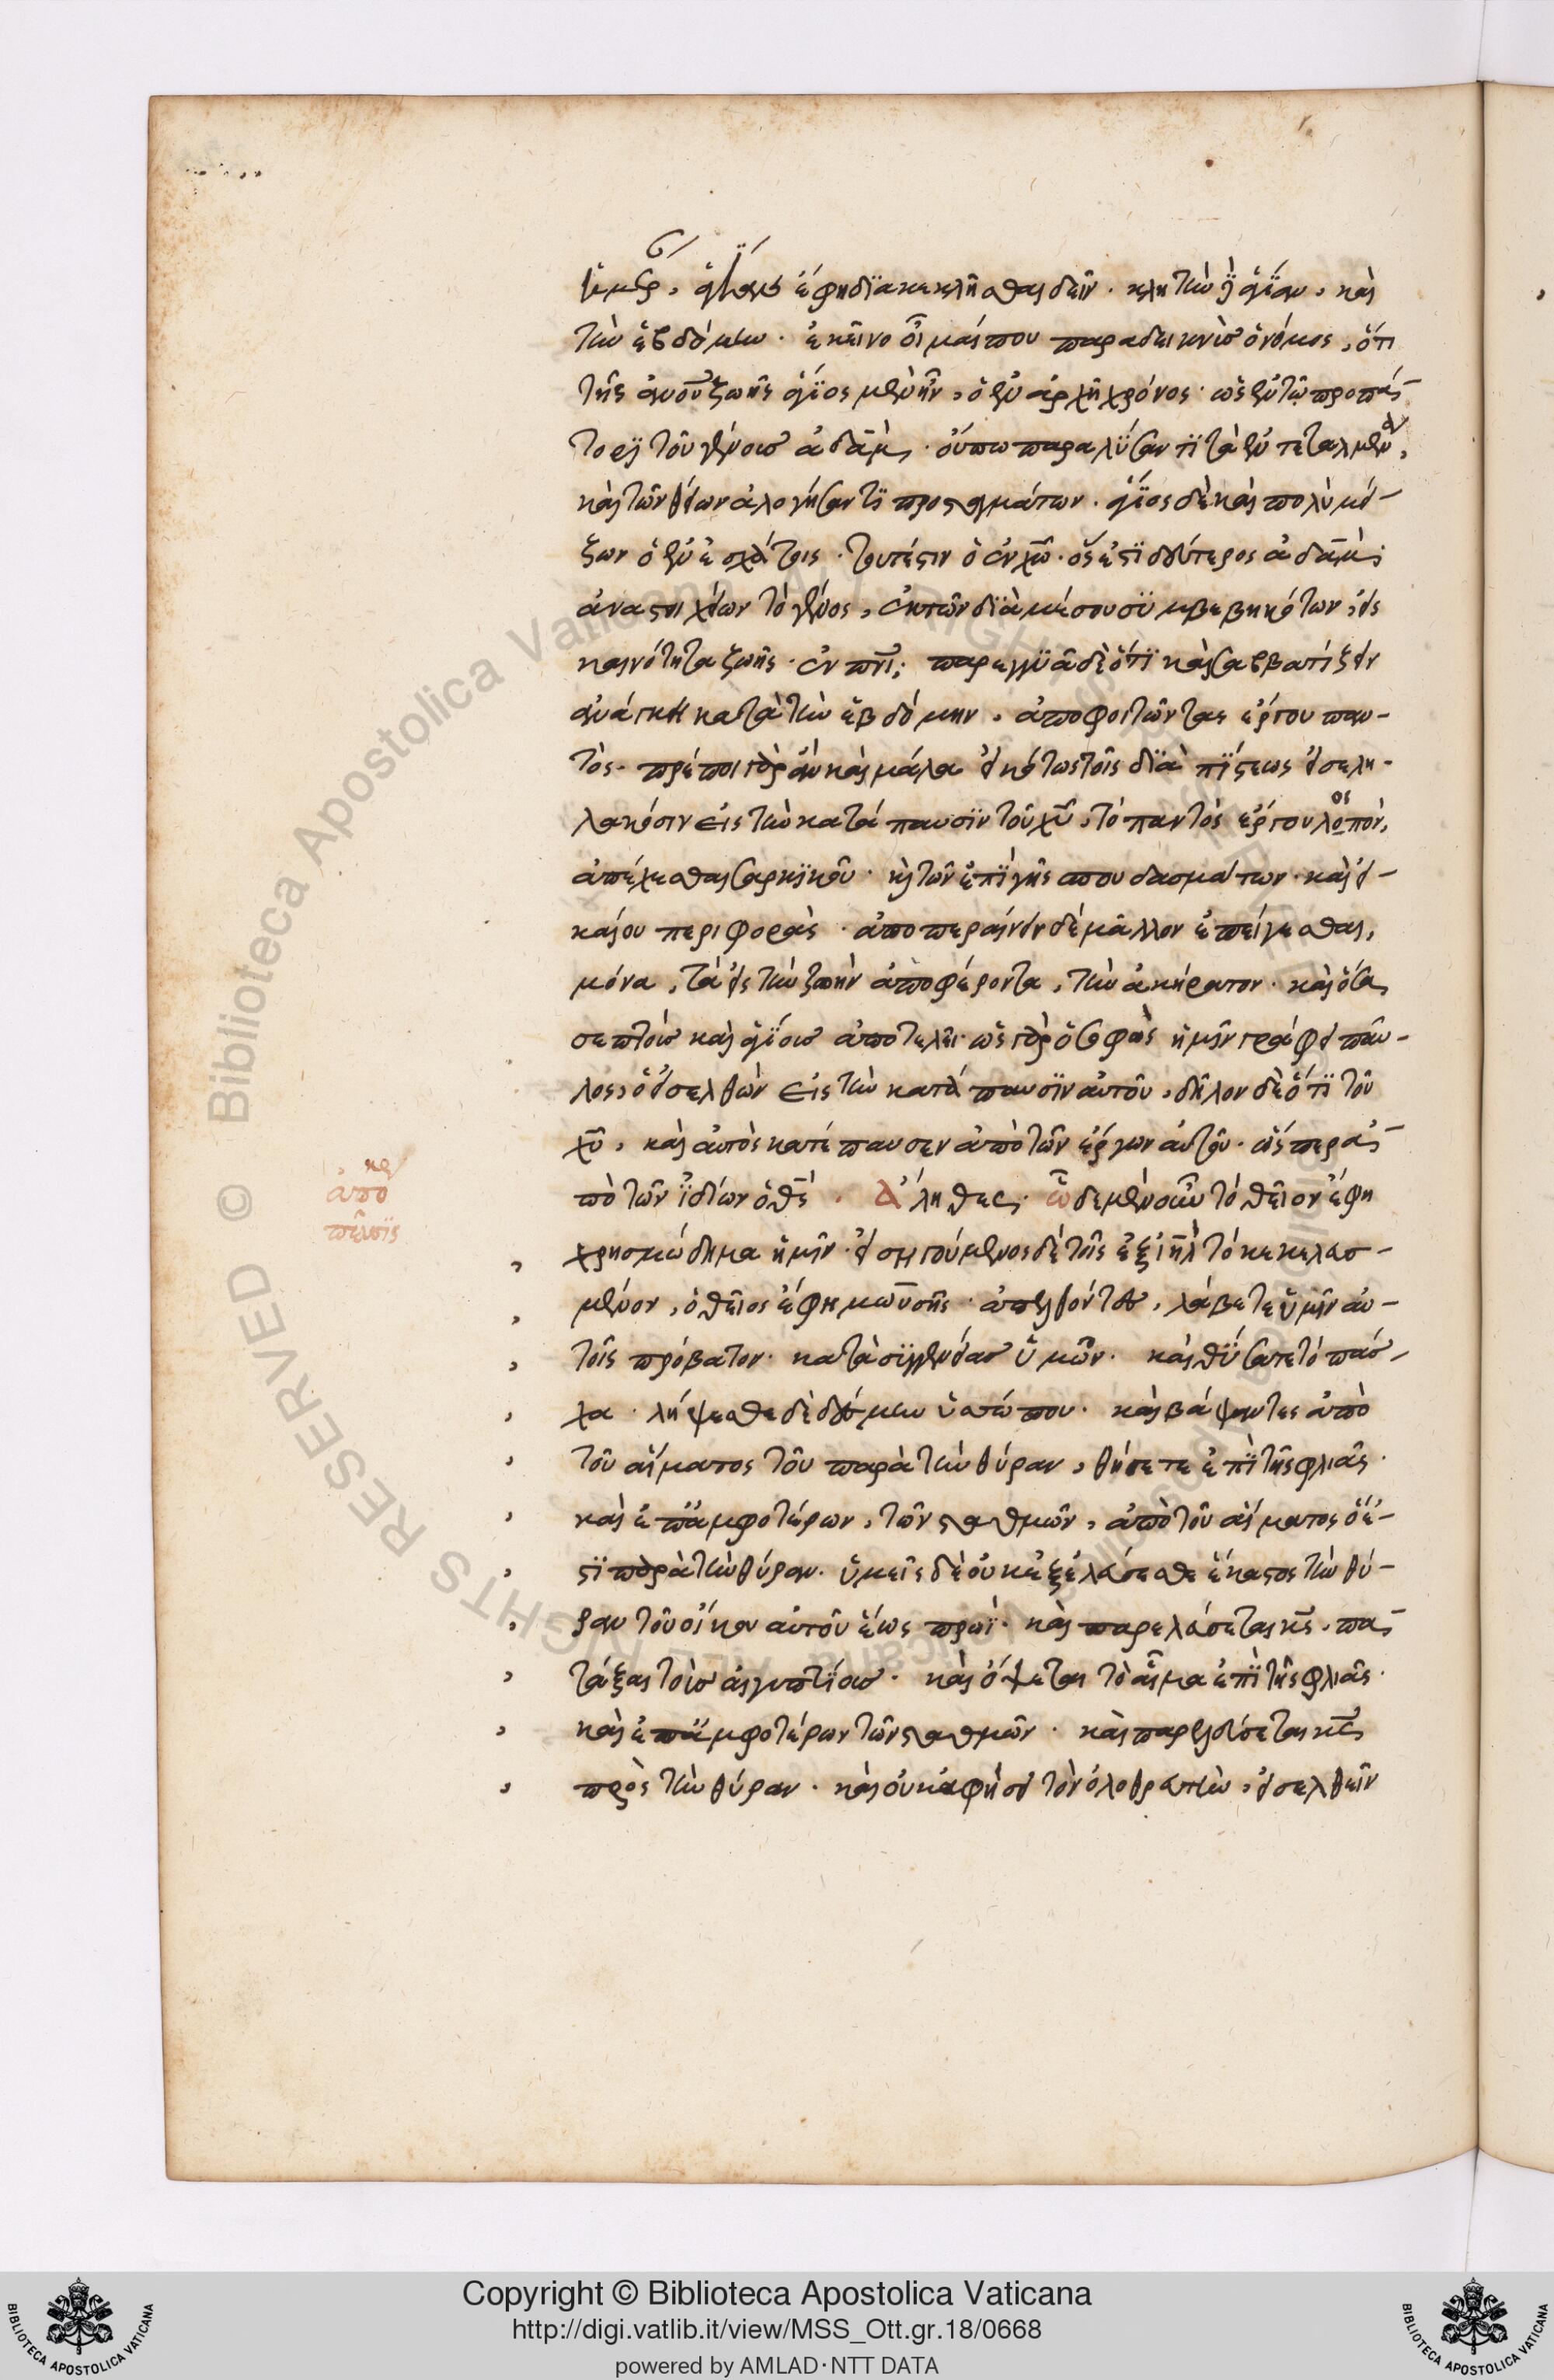 ἡμέρ, ἁγίαν ἔφη διακεκλῆσθαι δεῖν. κλητὴν ἢ ἁγίαν, καὶ
τὴν ἑβδόμην. ἐκεῖνο οἶμαί που παραδεικνὺς ὁ νόμος, ὅτι
τῆς ἀνου ζωῆς ἅγιος μὲν ἦν, ὁ ἐν ἀρχῇ χρόνος. ὡς ἐν τῷ προπά-
τορι τοῦ γένους ἀδὰμ, οὔπω παραλύσαντι τὰ ἐντεταλμένα,
καὶ τῶν θείων ἀλογήσαντι προσταγμάτων. ἅγιος δὲ καὶ πολὺ μεί-
ζων ὁ ἐν ἐσχάτοις. τουτέστιν ὁ ἐν χῶ. ὅς ἐστι δεύτερος ἀδὰμ,
ἀναστοιχείων τὸ γένος, ἐκ τῶν διὰ μέσου συμβεβηκότων, εἰς
καινότητα ζωῆς. ἐν πνι; παρεγγυᾶ δὲ ὅτι καὶ σαββατίζειν
ἀνάγκη κατὰ τὴν ἑβδόμην, ἀποφοιτῶντας ἔργου παν-
τός. πρέποι γὰρ ἂν καὶ μάλα εἰκότως τοῖς διὰ πίστεως εἰσελη-
λακόσιν εἰς τὴν κατάπαυσιν τοῦ χυ, τὸ παντὸς ἔργου λοιπὸν,
ἀπέχεσθαι σαρκικοῦ. καὶ τῶν ἐπὶ γῆς σπουδασμάτων. καὶ εἰ-
καίου περιφορᾶς. ἀποπεραίνειν δὲ μᾶλλον ἐπείγεσθαι,
μόνα, τὰ εἰς τὴν ζωὴν ἀποφέροντα, τὴν ἀκήρατον. καὶ ὅσα
σεπτοὺς καὶ ἁγίους ἀποτελεῖ. ὡς γὰρ ὁ σοφὸς ἡμῖν γράφει παῦ-
λος, ὁ εἰσελθὼν εἰς τὴν κατάπαυσιν αὐτοῦ, δῆλον δὲ ὅτι τοῦ
χυ, καὶ αὐτὸς κατέπαυσεν ἀπὸ τῶν ἔργων αὐτοῦ. ὥσπερ ἀ-
πὸ τῶν ἰδίων ὁ θς.
Ἀληθες. ὧδε μὲν οὖν τὸ θεῖον ἔφη
ἀπο
χρησμώδημα ἡμῖν. εἰσηγούμενος δὲ τοῖς ἐξ ιηλ τὸ κεκελευσ-
μένον, ὁ θεῖος ἔφη μωϋσῆς. ἀπελθόντες, λάβετε ὑμῖν αὐ-
τοῖς πρόβατον. κατὰ συγγενείας ὑμῶν. καὶ θύσατε τὸ πάσ-
χα. λήψεσθε δὲ δέσμην ὑσσώπου. καὶ βάψαντες ἀπὸ
τοῦ αἵματος τοῦ παρὰ τὴν θύραν, θήσετε ἐπὶ τῆς φλιᾶς.
καὶ ἐπ' ἀμφοτέρων, τῶν σταθμῶν, ἀπὸ τοῦ αἵματος ὅ ἐ-
στι παρὰ τὴν θύραν. ὑμεῖς δὲ οὐκ ἐξελεύσεσθε ἕκαστος τὴν θύ-
ραν τοῦ οἴκου αὐτοῦ ἕως πρωΐ. καὶ παρελεύσεται κς, πα-
τάξαι τοὺς αἰγυπτίους. καὶ ὄψεται τὸ αἷμα ἐπὶ τῆς φλιᾶς.
καὶ ἐπ' ἀμφοτέρων τῶν σταθμῶν. καὶ παρελεύσεται κς
πρὸς τὴν θύραν. καὶ οὐκ ἀφήσει τὸν ὀλοθρευτὴν, εἰσελθεῖν
© Biblioteca Apostolica Vaticana ALL RIGHTS RESERVED
Copyright © Biblioteca Apostolica Vaticana
http://digi.vatlib.it/view/MSS_Ott.gr.18/0668
powered by AMLAD·NTT DATA
BIBLIOTECA APOSTOLICA VATICANA
BIBLIOTECA APOSTOLICA VATICANA